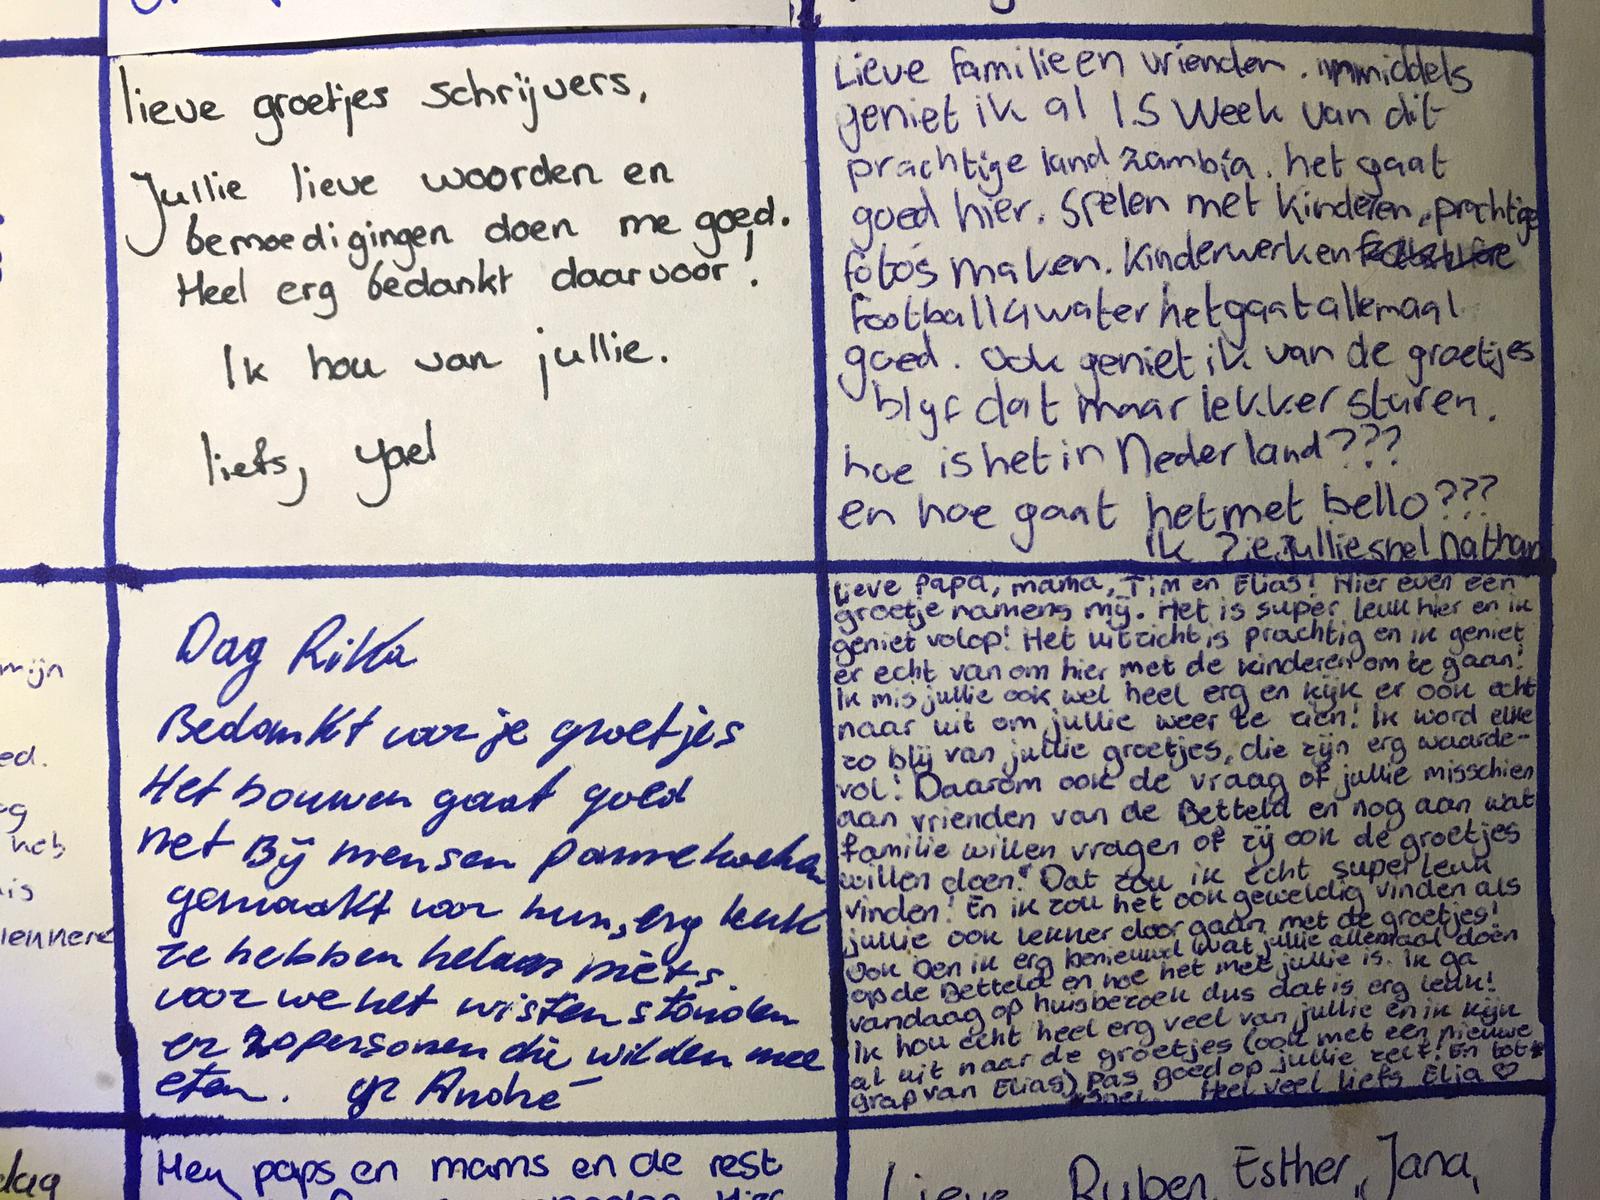 lieve groetjes schrijvers,
Jullie lieve woorden en
bemoedigingen doen me goed.
Heel erg bedankt daarvoor!
Ik hou van jullie.
liefs, Yael
Lieve familie en vrienden. inmiddels
geniet ik al 1.5 week van dit
prachtige land zambia. het gaat
goed hier. Spelen met kinderen, prachtige
foto's maken. Kinderwerk en
football4water het gaat allemaal
goed. Ook geniet ik van de groetjes
blyf dat maar lekker sturen.
hoe is het in Nederland???
en hoe gaat het met bello???
Ik zie jullie snel Nathan
Dag Rika
Bedankt voor je groetjes
Het bouwen gaat goed
net Bij mensen pannekoeken
gemaakt voor hun, erg leuk
ze hebben helaas niets.
voor we het wisten stonden
er 20 personen die wilden mee
eten. gr André
Lieve Papa, mama, Tim en Elias! Hier even een
groetje namens mij. Het is super leuk hier en ik
geniet volop! Het uitzicht is prachtig en ik geniet
er echt van om hier met de kinderen om te gaan!
Ik mis jullie ook wel heel erg en kijk er ook echt
naar uit om jullie weer te zien! Ik word elke
zo blij van jullie groetjes, die zijn erg waarde-
vol! Daarom ook de vraag of jullie misschien
aan vrienden van de Betteld en nog aan wat
familie willen vragen of zij ook de groetjes
willen doen? Dat zou ik echt super leuk
vinden! En ik zou het ook geweldig vinden als
jullie ook lekker door gaan met de groetjes!
Ook ben ik erg benieuwd wat jullie allemaal doen
op de Betteld en hoe het met jullie is. Ik ga
vandaag op huisbezoek dus dat is erg leuk!
Ik hou echt heel erg veel van jullie en ik kijk
al uit naar de groetjes (ook met een nieuwe
grap van Elias) Pas goed op jullie zelf! En tot
snel. Heel veel liefs Elja ♡
mijn
ed.
heb
is
dag
Hey paps en mams en de rest
Lieve Ruben, Esther, Jana,